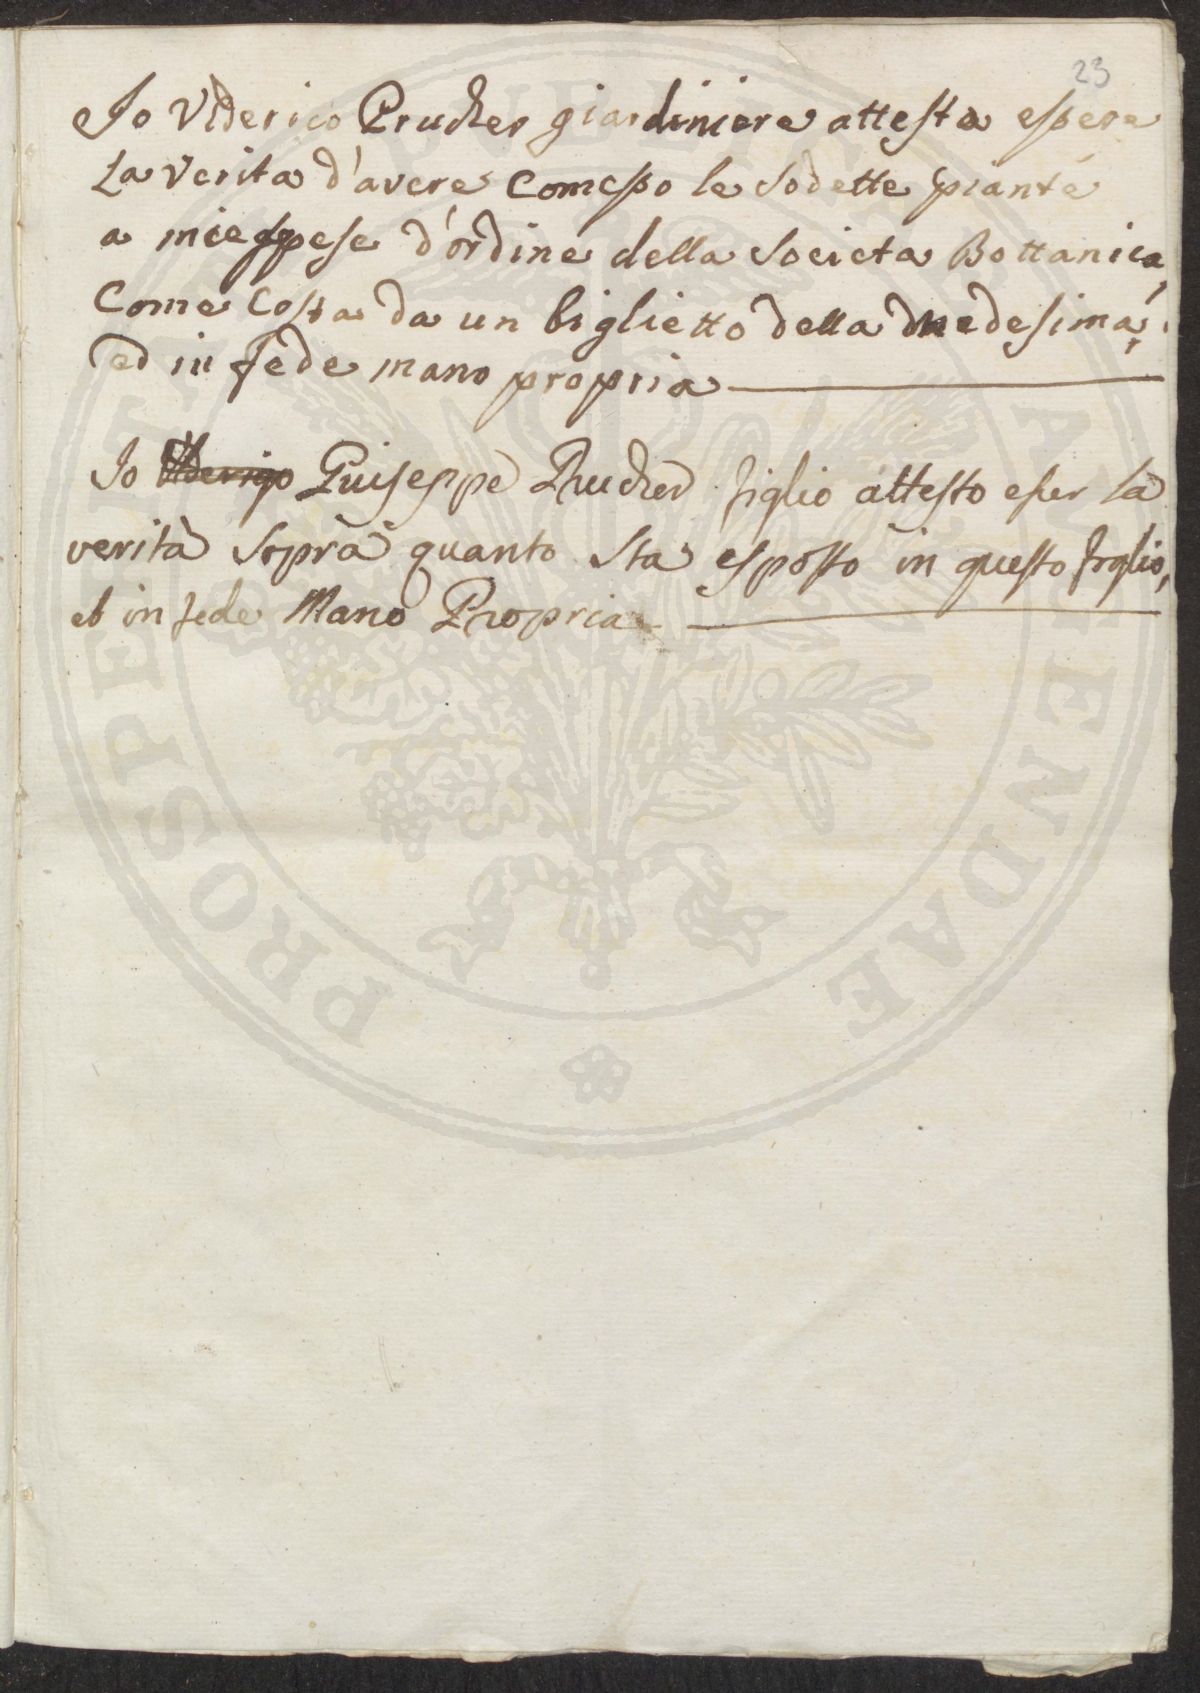 23
Io Vlderico Prucker giardiniere attesta essere
La verita d'avere Comesso le Sodette piante
a miespese d'ordine della Societa Bottanica,
Come Costa da un biglietto della medesima,
ed in fede mano propria
Io Giuseppe Prucker figlio attesto esser la
verità soprà quanto sta esposto in questo foglio,
et in fede Mano Propria
PUBLICAE
PROSPERITATI
AVGENDAE